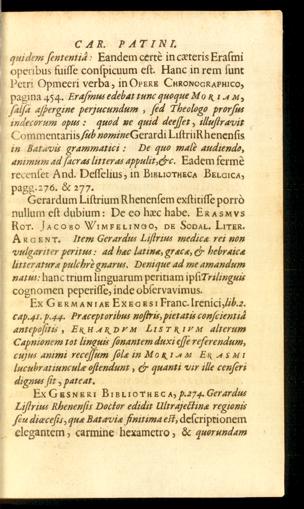 CAR. PATINI.
quidem sententiâ: Eandem certè in cæteris Erasmi
operibus fuisse conspicuum est. Hanc in rem sunt
Petri Opmeeri verba, in OPERE CHRONOGRAPHICO,
pagina 454. Erasmus edebat tunc quoque MORIAM,
salsâ aspergine perjucundum, sed Theologo prorsus
indecorum opus: quod ne quid deesset, illustravit
Commentariis sub nomine Gerardi Listrii Rhenensis
in Batavis grammatici: De quo malè audiendo,
animum ad sacras litteras appulit, &c. Eadem fermè
recenset And. Desselius, in BIBLIOTHECA BELGICA,
pagg. 276. & 277.
Gerardum Listrium Rhenensem exstitisse porrò
nullum est dubium: De eo hæc habe. ERASMVS
ROT. JACOBO WIMFELINGO, DE SODAL. LITER.
ARGENT. Item Gerardus Listrius medicæ rei non
vulgariter peritus: ad hæc latinæ, græcæ, & hebraicæ
litteraturæ pulchrè gnarus. Denique ad me amandum
natus: hanc trium linguarum peritiam ipsi Trilinguis
cognomen peperisse, inde observavimus.
Ex GERMANIAE EXEGESI Franc. Irenici, lib. 2.
cap. 41. p. 44. Præceptoribus nostris, pietatis conscientiâ
antepositis, ERHARDVM LISTRIVM alterum
Capnionem tot linguis sonantem duxi esse referendum,
cujus animi recessum solæ in MORIAM ERASMI
lucubratiunculæ ostendunt, & quanti vir ille censeri
dignus sit, pateat.
Ex GESNERI BIBLIOTHECA, p. 274. Gerardus
Listrius Rhenensis Doctor edidit Ultrajectinæ regionis
seu diœcesis, quæ Bataviæ finitima est, descriptionem
elegantem, carmine hexametro, & quorundam